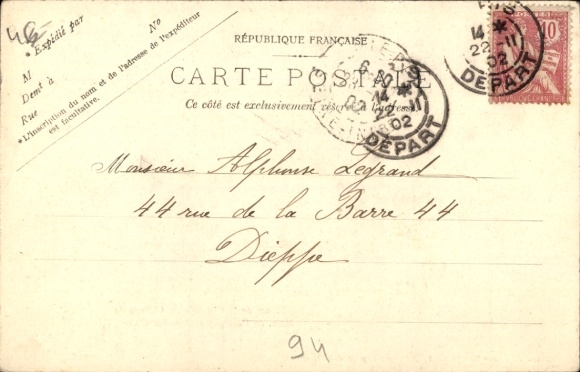 46
Nº
* Expédié par
M
Demt à
Rue
* L'inscription du nom et de l'adresse de l'expéditeur
est facultative.
RÉPUBLIQUE FRANÇAISE
CARTE POSTALE
Ce côté est exclusivement réservé à l'adresse.
14 *
22 11
02
DÉPART
14 *
22 11
02
DÉPART
10
Monsieur Alphonse Legrand
44 rue de la Barre 44
Dieppe
94